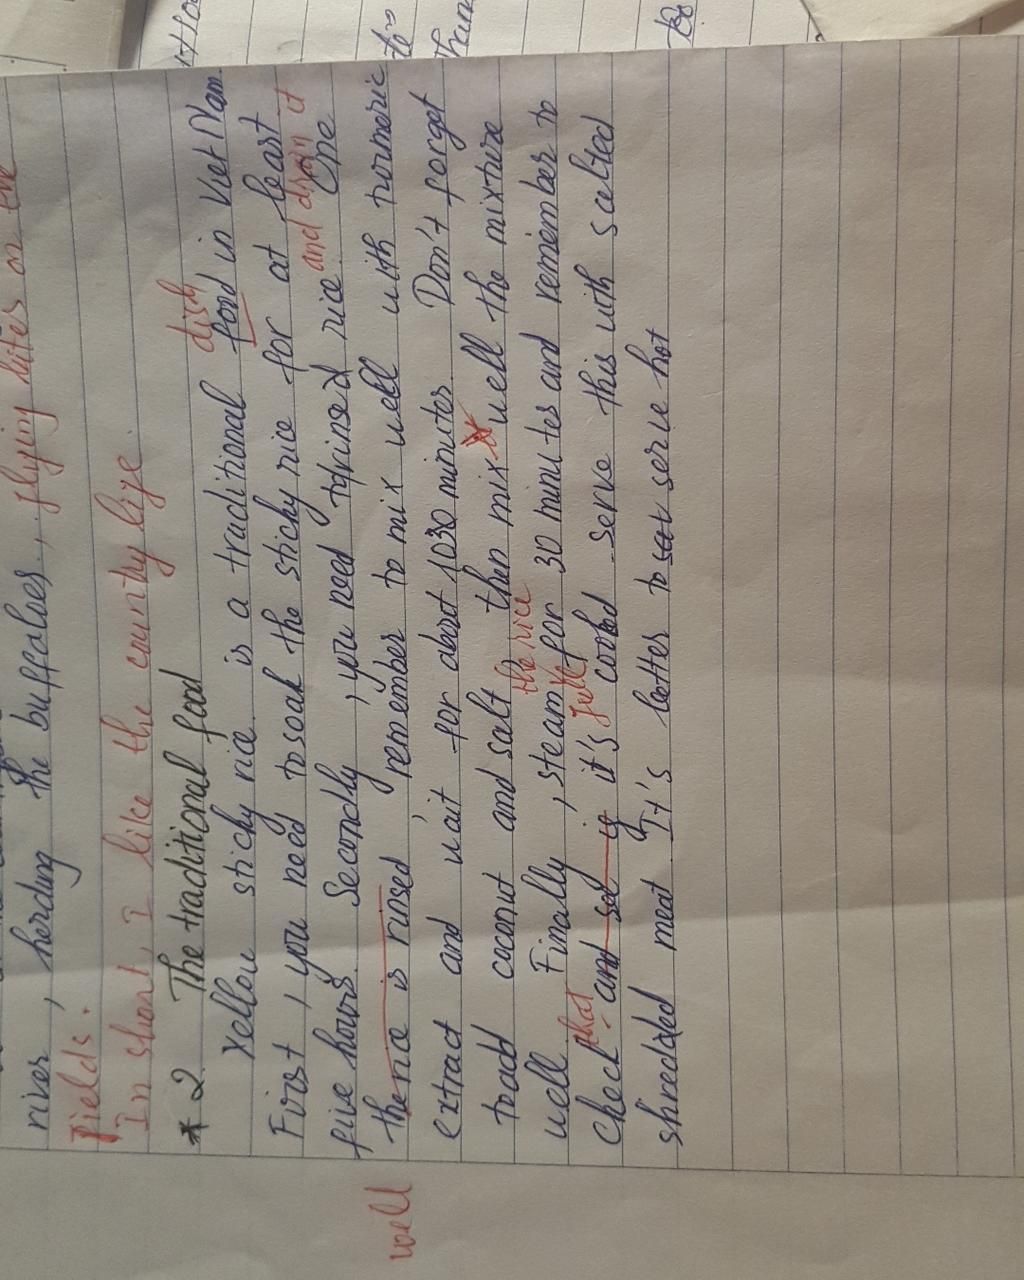 river, herding the buffaloes, flying kites on the
fields.
In short, I like the country life
* 2. The traditional food
dish
Yellow sticky rice is a traditional food in Viet Nam
First, you need to soak the sticky rice for at least
five hours. Secondly, you need rinsed rice and drain it One
the rice is rinsed, remember to mix well with turmeric
well
extract and wait for about 1030 minutes. Don't forget
to add coconut and salt then mix well the mixture
the rice
well Finally, steam for 30 minutes and remember to
Check that and see if it's fully cooked serve this with salted
shredded meat It's better to serve hot